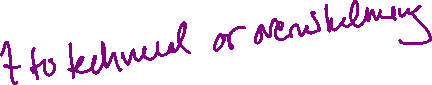 + to technical or overwhelming